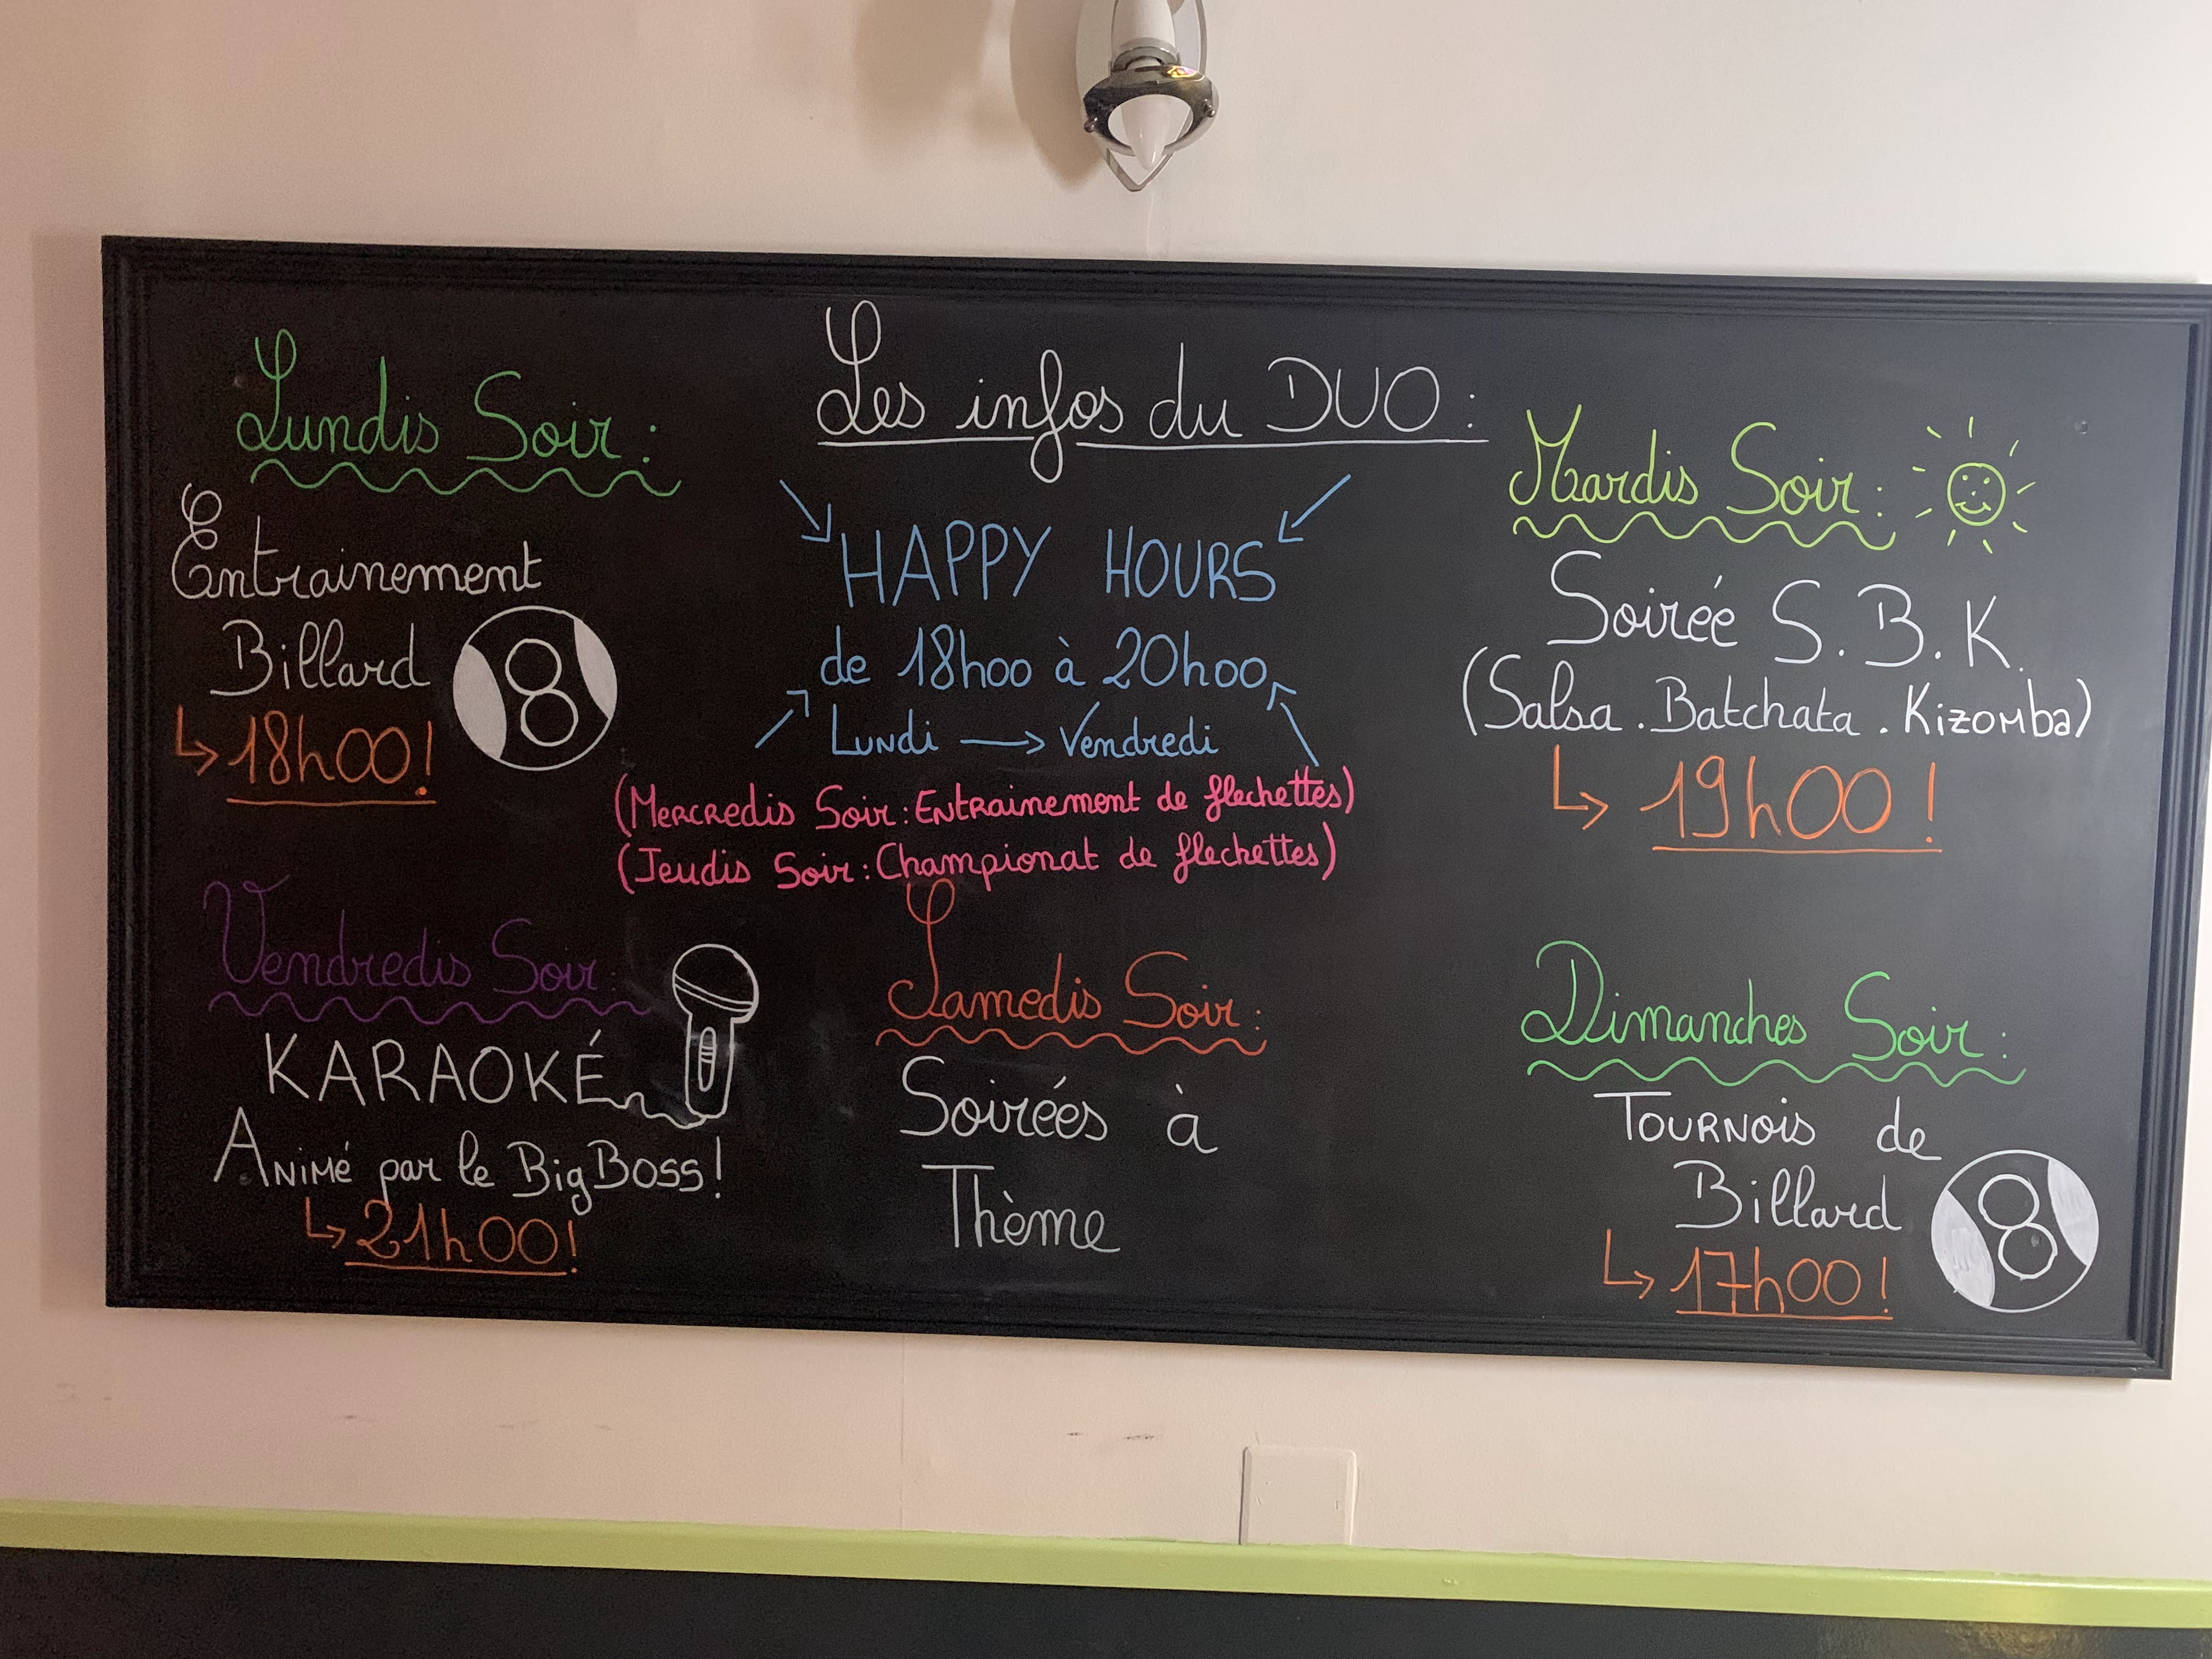 Les infos du DUO :
Lundis Soir :
Entrainement
Billard
8
↳ 18h00!
HAPPY HOURS
de 18h00 à 20h00
Lundi → Vendredi
(Mercredis Soir : Entrainement de flechettes)
(Jeudis Soir : Championat de flechettes)
Mardis Soir :
Soirée S.B.K.
(Salsa . Batchata . Kizomba)
↳ 19h00 !
Vendredis Soir :
KARAOKÉ
Animé par le Big Boss !
↳ 21h00!
Samedis Soir :
Soirées à
Thème
Dimanches Soir :
Tournois de
Billard
8
↳ 17h00 !